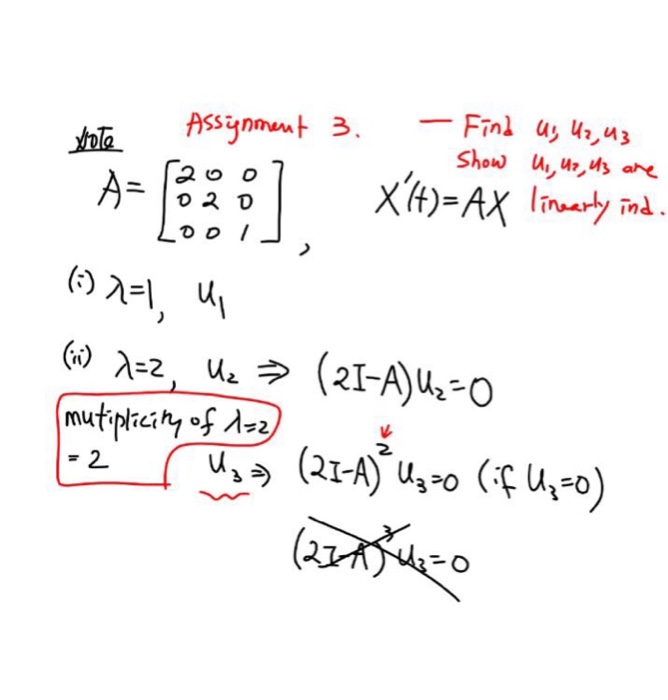 Note
Assignment 3.
— Find u₁, u₂, u₃
Show u₁, u₂, u₃ are
linearly ind.
A = [2 0 0
0 2 0
0 0 1],
X'(t) = AX
(i) λ=1, u₁
(ii) λ=2, u₂ ⇒ (2I-A)u₂=0
mutiplicity of λ=2
= 2
u₃ ⇒ (2I-A)² u₃=0 (if u₃=0)
(2I-A)³ u₃=0